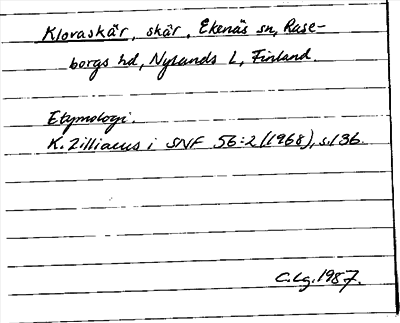 Klovaskär, skär, Ekenäs sn, Rase-
borgs hd, Nylands L, Finland.
Etymologi.
K. Zilliacus i SNF 56:2 (1968), s.136.
C.Lg. 1987.